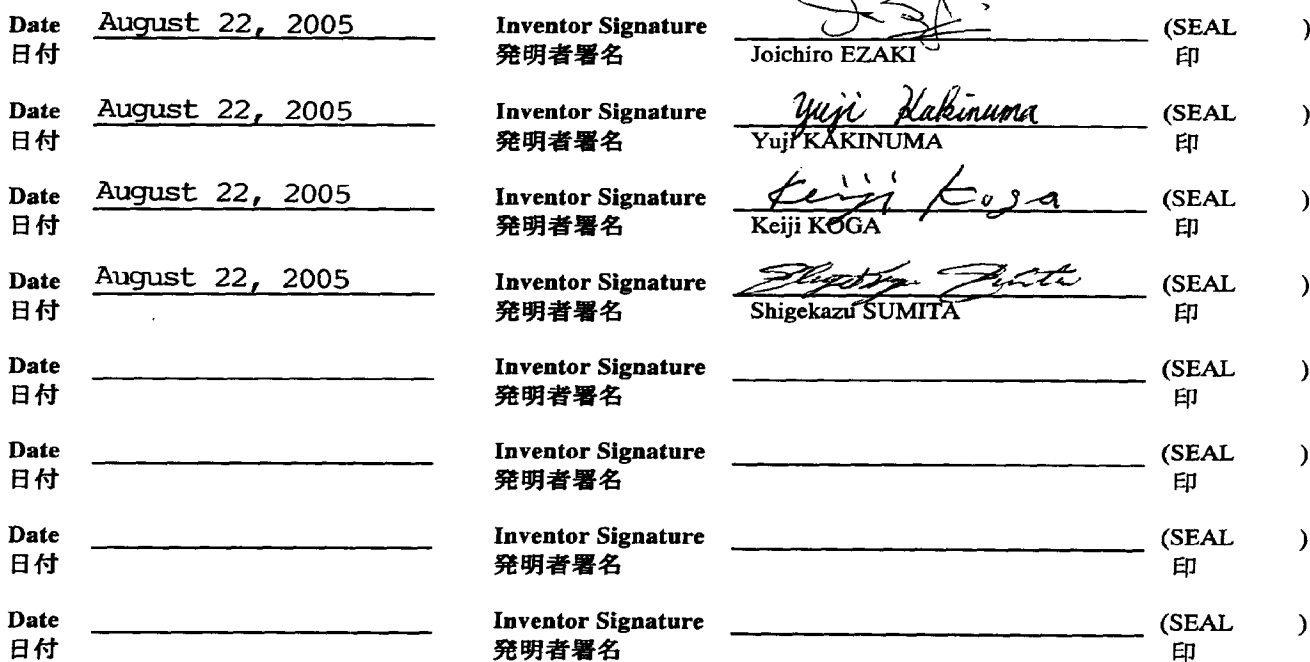 Date August 22, 2005 Inventor Signature (SEAL )
日付 発明者署名 Joichiro EZAKI 印
Date August 22, 2005 Inventor Signature Yuji Kakinuma (SEAL )
日付 発明者署名 Yuji KAKINUMA 印
Date August 22, 2005 Inventor Signature Keiji Koga (SEAL )
日付 発明者署名 Keiji KOGA 印
Date August 22, 2005 Inventor Signature (SEAL )
日付 発明者署名 Shigekazu SUMITA 印
Date Inventor Signature (SEAL )
日付 発明者署名 印
Date Inventor Signature (SEAL )
日付 発明者署名 印
Date Inventor Signature (SEAL )
日付 発明者署名 印
Date Inventor Signature (SEAL )
日付 発明者署名 印